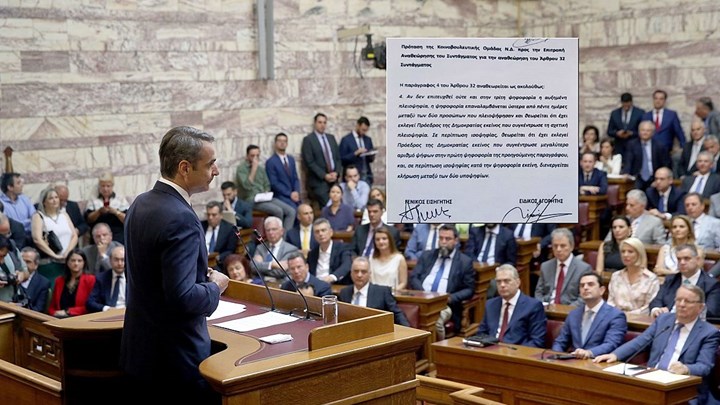 Πρόταση της Κοινοβουλευτικής Ομάδας Ν.Δ. προς την Επιτροπή
Αναθεώρησης του Συντάγματος για την αναθεώρηση του Άρθρου 32
Συντάγματος
Η παράγραφος 4 του Άρθρου 32 αναθεωρείται ως ακολούθως:
4. Αν δεν επιτευχθεί ούτε και στην τρίτη ψηφοφορία η αυξημένη
πλειοψηφία, η ψηφοφορία επαναλαμβάνεται ύστερα από πέντε ημέρες
μεταξύ των δύο προσώπων που πλειοψήφησαν και θεωρείται ότι έχει
εκλεγεί Πρόεδρος της Δημοκρατίας εκείνος που συγκέντρωσε τη σχετική
πλειοψηφία. Σε περίπτωση ισοψηφίας, θεωρείται ότι έχει εκλεγεί
Πρόεδρος της Δημοκρατίας εκείνος που συγκέντρωσε μεγαλύτερο
αριθμό ψήφων στην πρώτη ψηφοφορία της προηγούμενης παραγράφου,
και, σε περίπτωση ισοψηφίας κατά την ψηφοφορία εκείνη, διενεργείται
κλήρωση μεταξύ των δύο υποψηφίων.
ΓΕΝΙΚΟΣ ΕΙΣΗΓΗΤΗΣ ΕΙΔΙΚΟΣ ΑΓΟΡΗΤΗΣ